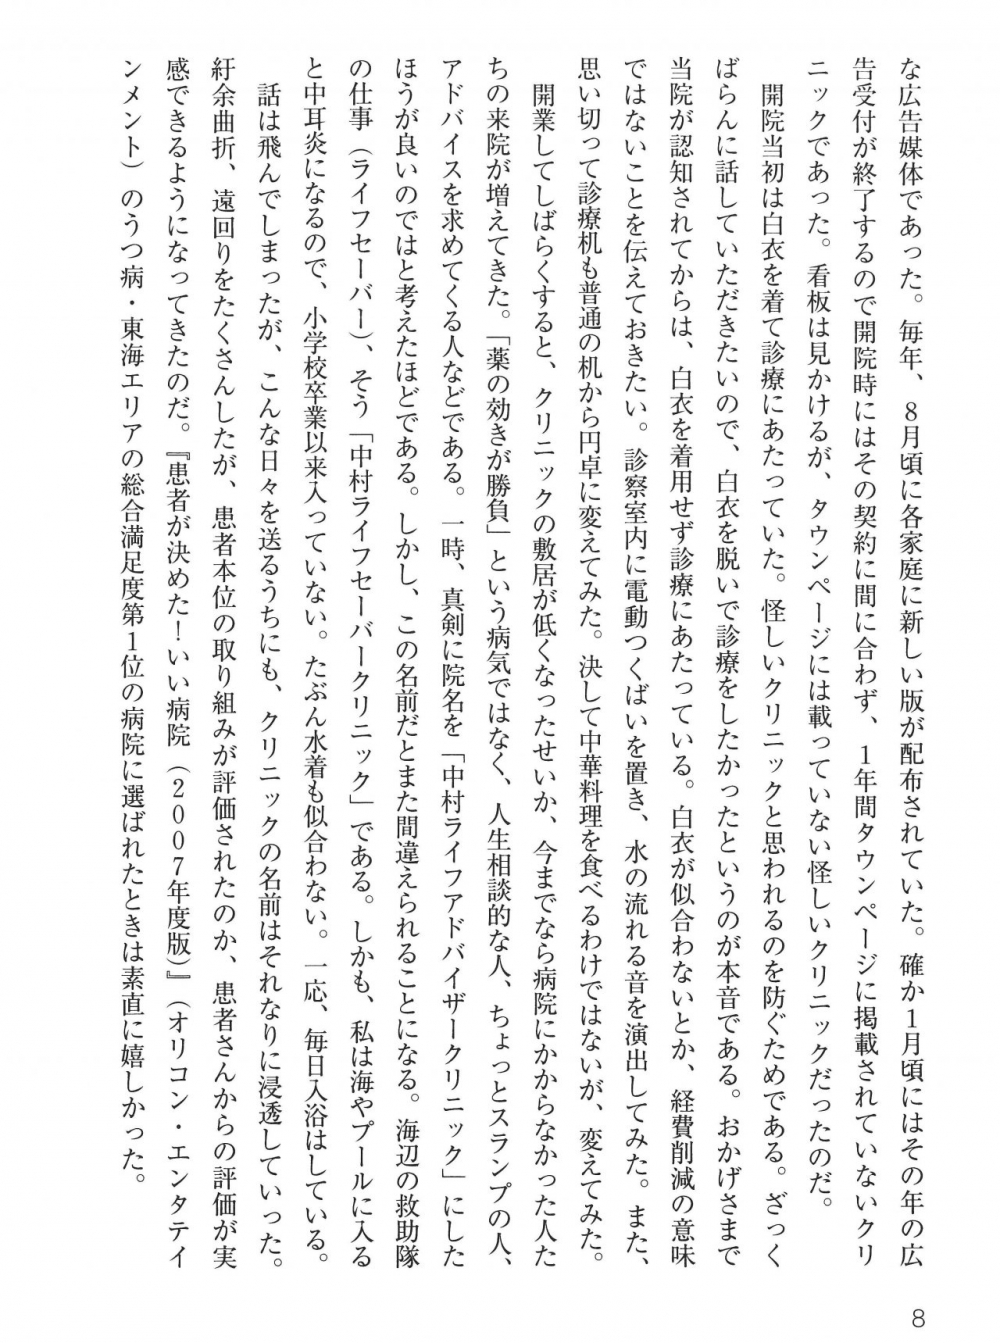 な広告媒体であった。毎年、8月頃に各家庭に新しい版が配布されていた。確か1月頃にはその年の広
告受付が終了するので開院時にはその契約に間に合わず、1年間タウンページに掲載されていないクリ
ニックであった。看板は見かけるが、タウンページには載っていない怪しいクリニックだったのだ。
開院当初は白衣を着て診療にあたっていた。怪しいクリニックと思われるのを防ぐためである。ざっく
ばらんに話していただきたいので、白衣を脱いで診療をしたかったというのが本音である。おかげさまで
当院が認知されてからは、白衣を着用せず診療にあたっている。白衣が似合わないとか、経費削減の意味
ではないことを伝えておきたい。診察室内に電動つくばいを置き、水の流れる音を演出してみた。また、
思い切って診療机も普通の机から円卓に変えてみた。決して中華料理を食べるわけではないが、変えてみた。
開業してしばらくすると、クリニックの敷居が低くなったせいか、今までなら病院にかからなかった人た
ちの来院が増えてきた。「薬の効きが勝負」という病気ではなく、人生相談的な人、ちょっとスランプの人、
アドバイスを求めてくる人などである。一時、真剣に院名を「中村ライフアドバイザークリニック」にした
ほうが良いのではと考えたほどである。しかし、この名前だとまた間違えられることになる。海辺の救助隊
の仕事（ライフセーバー）、そう「中村ライフセーバークリニック」である。しかも、私は海やプールに入る
と中耳炎になるので、小学校卒業以来入っていない。たぶん水着も似合わない。一応、毎日入浴はしている。
話は飛んでしまったが、こんな日々を送るうちにも、クリニックの名前はそれなりに浸透していった。
紆余曲折、遠回りをたくさんしたが、患者本位の取り組みが評価されたのか、患者さんからの評価が実
感できるようになってきたのだ。『患者が決めた！いい病院（2007年度版）』（オリコン・エンタテイ
ンメント）のうつ病・東海エリアの総合満足度第1位の病院に選ばれたときは素直に嬉しかった。
8